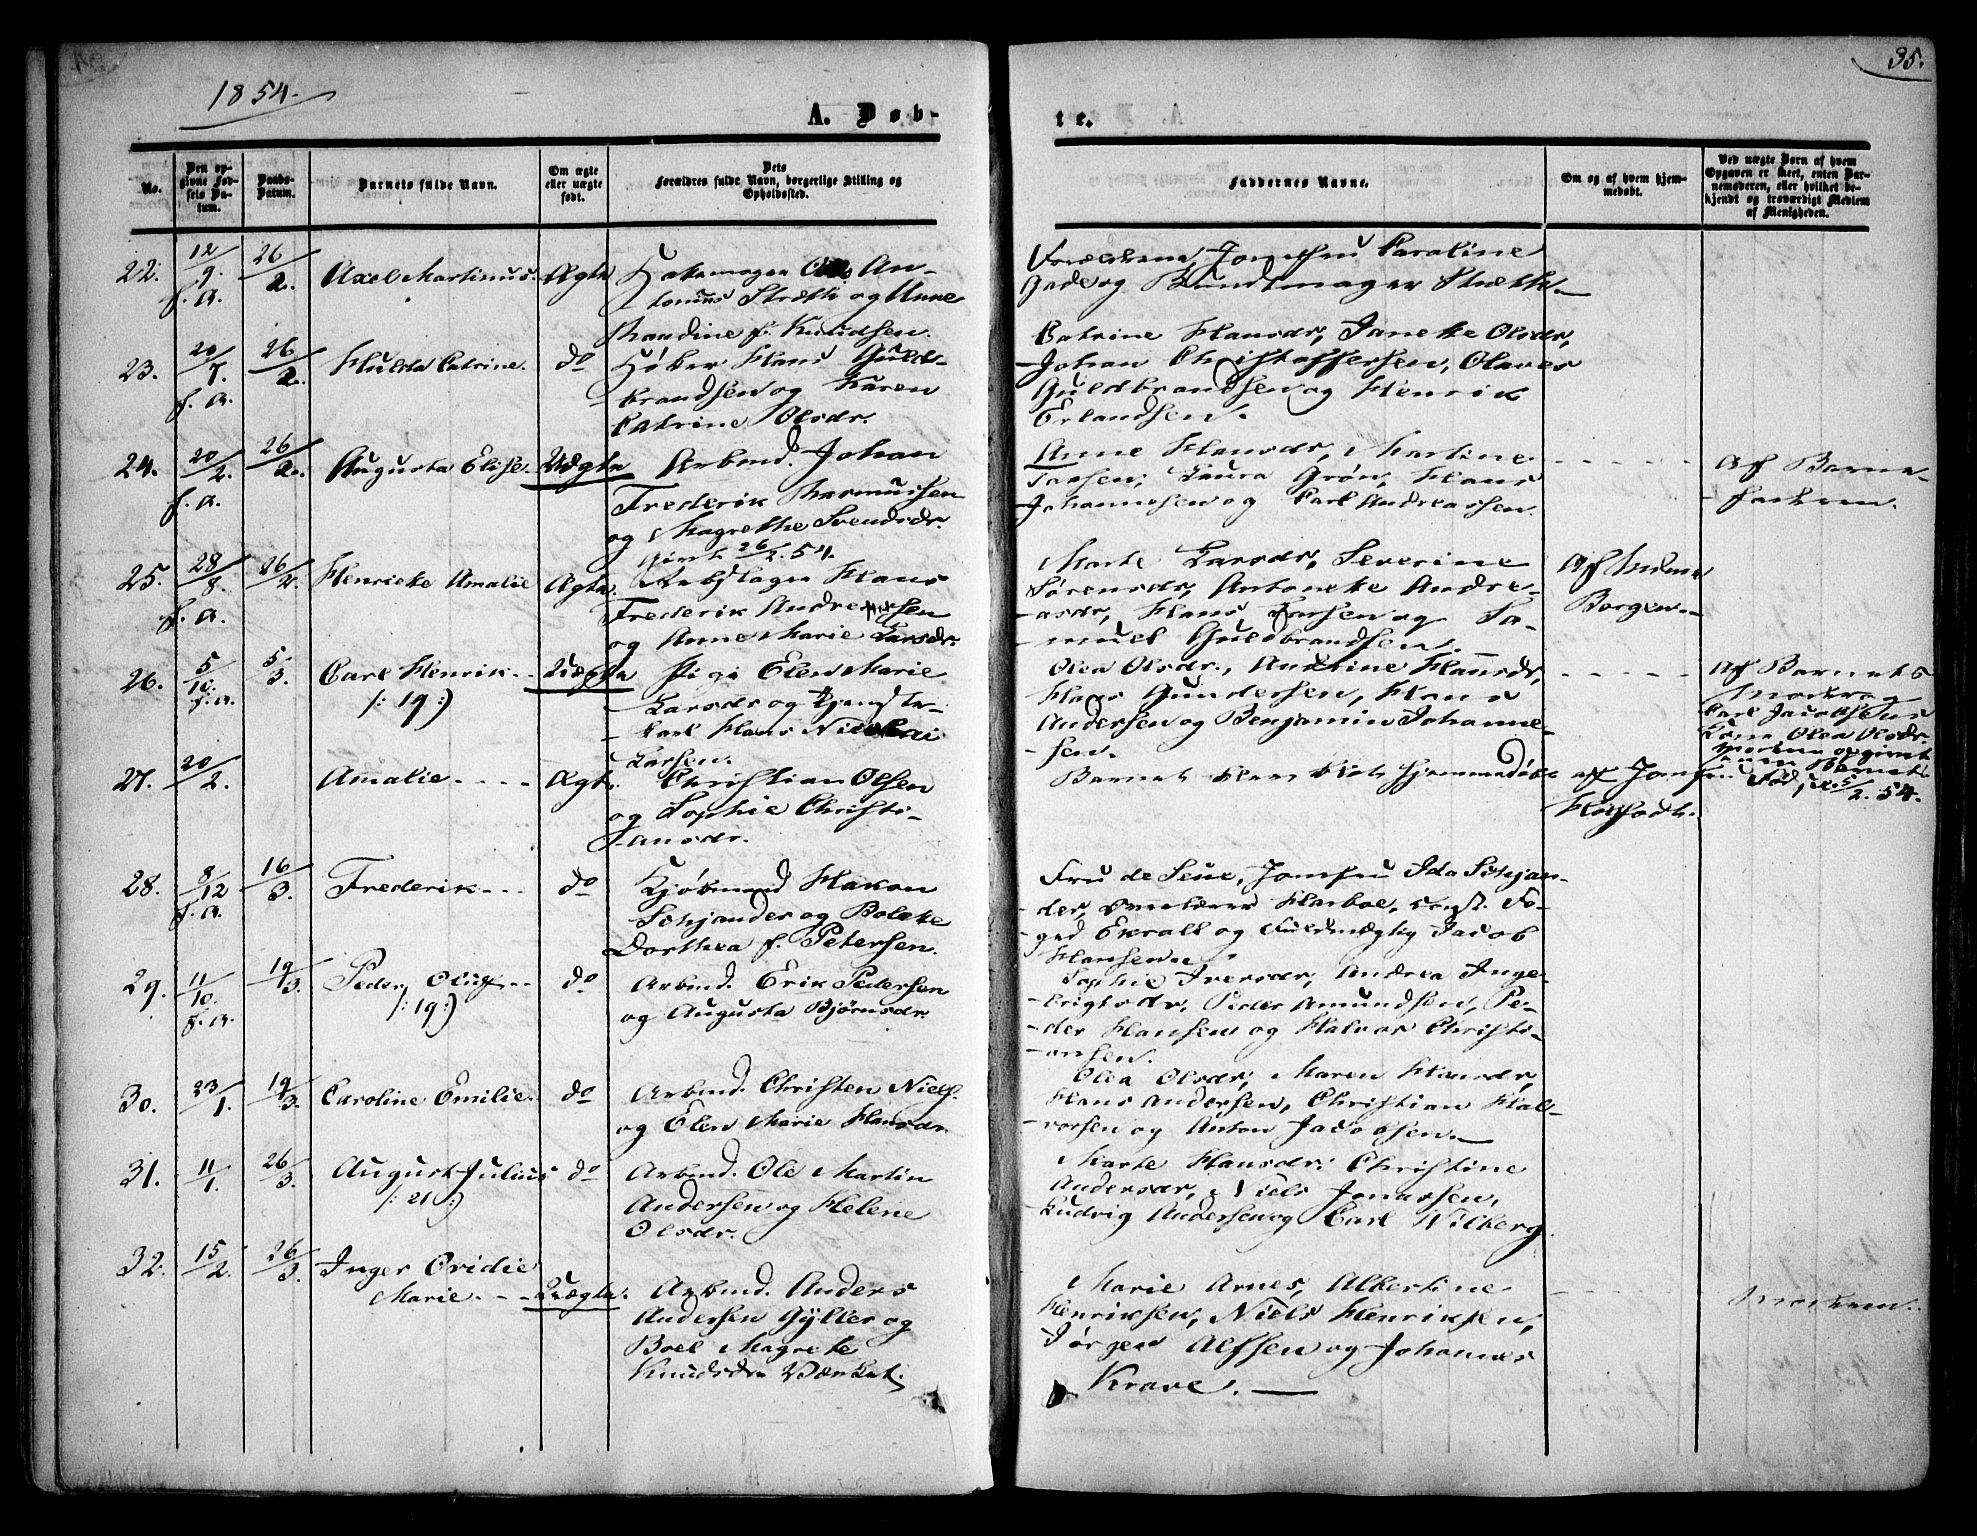 1854.
35.
A. Døb-
te.
No.
Den op-
givne Fød-
sels Da-
tum.
Daabs-
Datum.
Barnets fulde Navn.
Om ægte
eller uægte
født.
Dets
Forældres fulde Navn, borgerlige Stilling og
Opholdssted.
Faddernes Navne.
Om og af hvem hjem-
medøbt.
Ved uægte Børn af hvem
Opgaven er skeet, enten Bar-
nemoderen, eller hvilket be-
kjendt og troværdigt Medlem
af Menigheden.
22. 12/9. f.a. 26/2. Axel Martinus. Ægte
An-
tonius Stræthe og Anne
Randine f. Knudsen.
Forældrene, Jomfru Caroline
Gade og Bundtmager Stræthe.
23. 20/7. f.a. 26/2. Hulda Catrine. do
Høker Hans Guld-
brandsen og Karen
Catrine Olsdr.
Catrine Hansdr, Janeke Olsdr,
Johan Christoffersen, Olaves
Guldbrandsen og Henrik
Erlandsen.
24. 20/2. f.a. 26/2. Augusta Elise. Uægte
Arbmd. Johan
Frederik Rasmussen
og Magrethe Svendsdr.
26/2. 54.
Anne Hansdr, Martine
Laura Grøn, Hans
Johannesen og Carl Andreassen.
Af Barne-
faderen.
25. 28/8. f.a. 26/2. Henrieke Amalie Ægte.
Rebslager Hans
Frederik Andreassen
og Anne Marie Larsdr.
Marte Larsdr, Severine
Sørensdr, Antoneke Andre-
asdr, Hans Larsen og Sa-
muel Guldbrandsen.
Af
Borgen.
26. 5/10. f.a. 5/3. Carl Henrik. /: 19:) Uægte
Pige Elen Marie
Larsdr og Tjeneste-
karl Hans Nicolai
Larsen.
Olea Olsdr., Andrine Hansdr,
Hans Gundersen, Hans
Andersen og Benjamin Johanne-
sen.
Af Barnets
Moder og
Carl Jacobsens
Kone Olea Olsdr.
27. 20/2. Amalie. Ægte.
Christian Olsen
og Sophie Christi-
ansdr.
Barnet blev kun hjemmedøbt af Jomfru
28. 8/12 f.a. 16/3. Frederik. do
Kjøbmand Hakon
Schjander og Boleke
Dorthea f. Petersen.
Fru de Seue, Jomfru Ida Schjan-
der, Harboe, const. Fo-
ged Ekroll og Fuldmægtig Jacob
Hansen.
29. 11/10. f.a. 19/3. Peder Oluf /: 19:) do
Arbmd. Erik Pedersen
og Augusta Bjørnsdr.
Sophie Iversdr, Andrea Inge-
brigtsdr, Peder Amundsen, Pe-
der Hansen og Halvor Christi-
ansen.
30. 23/1. 19/3. Caroline Emilie. do
Arbmd. Christen Niels.
og Elen Marie Hansdr.
Olea Olsdr, Maren Hansdr,
Hans Andersen, Christian Hal-
vorsen og Anton Jacobsen.
31. 11/1. 26/3. August Julius /: 21:) do
Arbmd. Ole Martin
Andersen og Helene
Olsdr.
Marte Hansdr, Christine
Andersdr, Niels Jonassen,
Ludvig Andersen og Carl Wilberg
32. 15/2. 26/3. Inger Oridie
Marie. Uægte.
Arbmd. Anders
Andersen Gyller og
Boel Magrete
Knudsdr Værket.
Marie Arnes, Albertine
Henriksen, Niels Henriksen,
Jørgen Alfsen og Johannes
Krave.
Moderen.